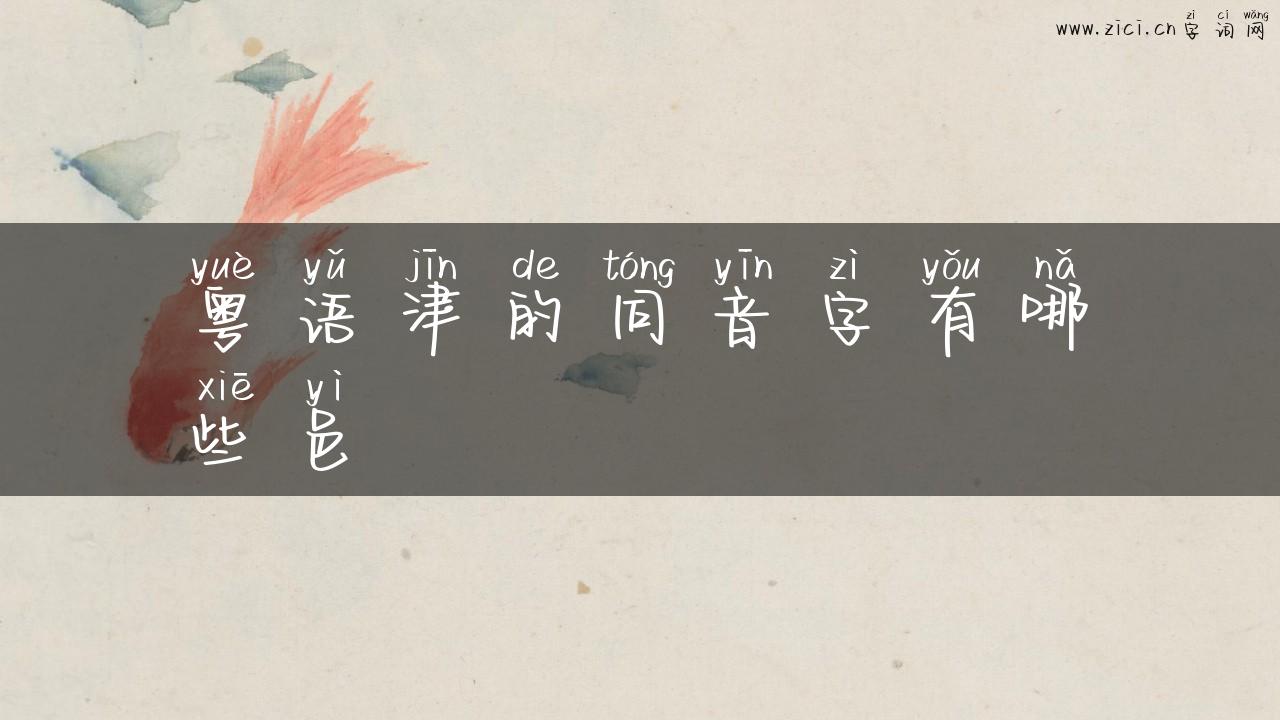 zì cí wǎng
www.zici.cn 字词网
yuè yǔ jīn de tóng yīn zì yǒu nǎ
粤语津的同音字有哪
xiē yì
些邑